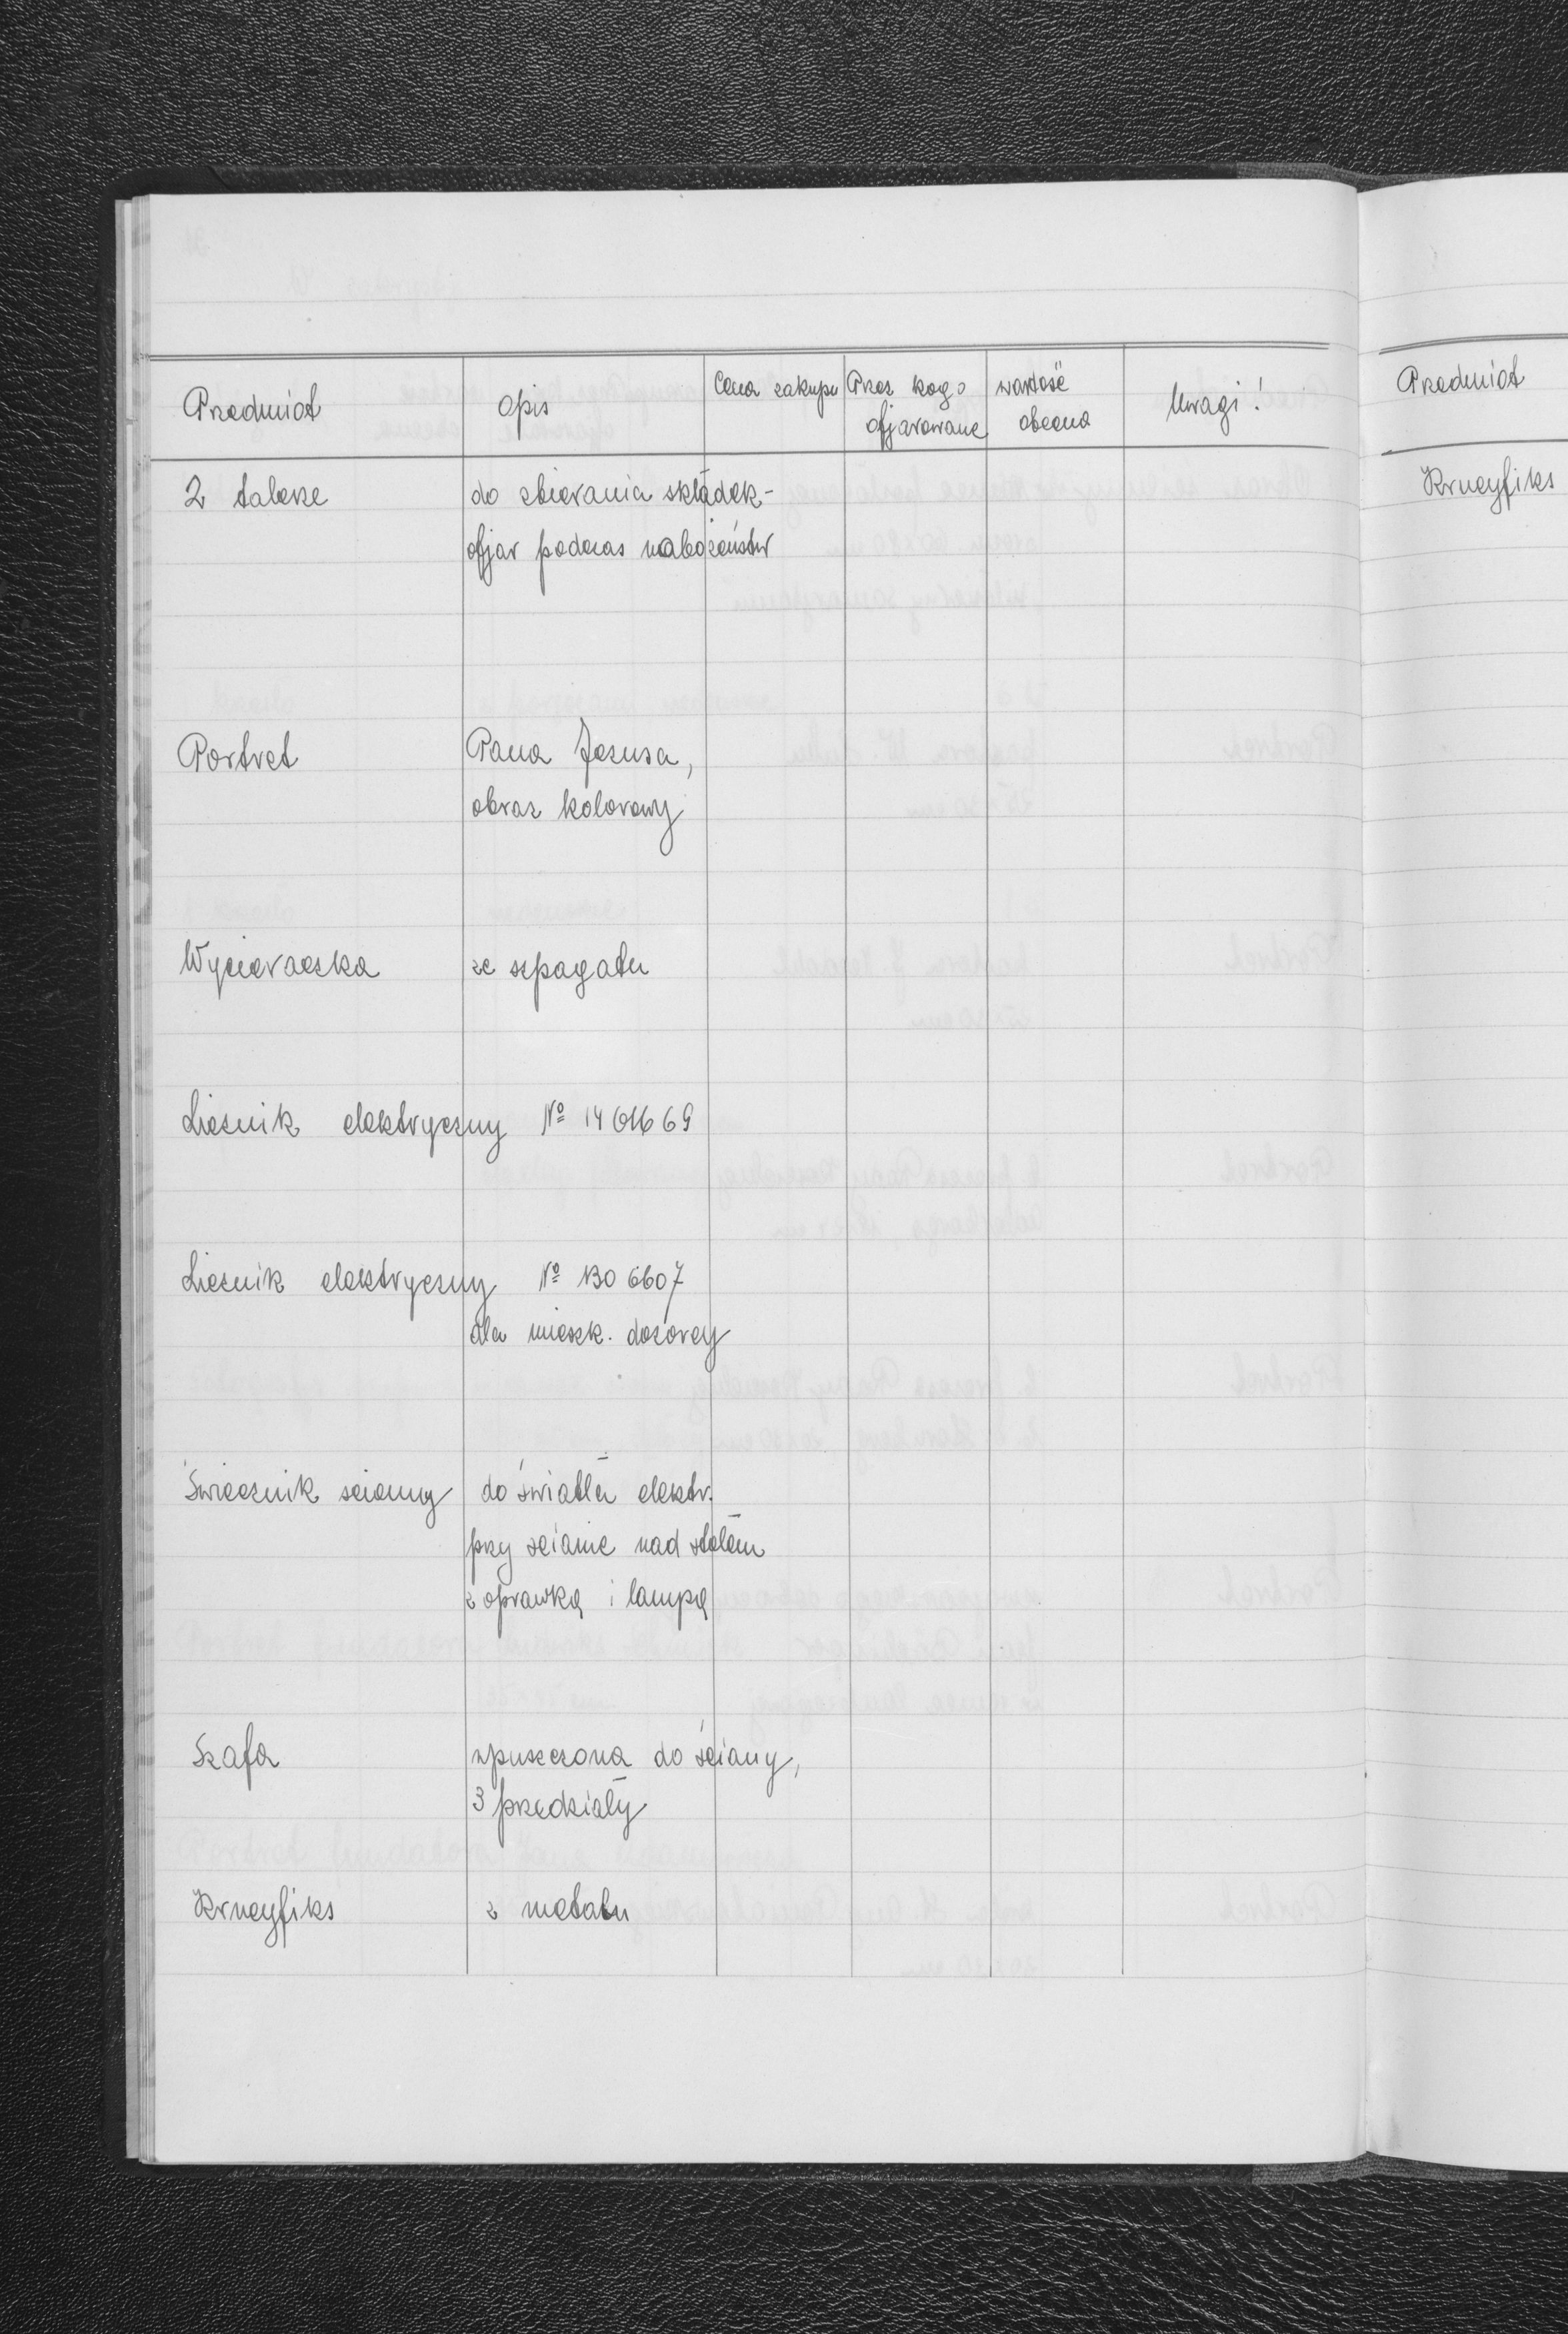 Przedmiot opis Cena zakupu Przez kogo ofjarowane wartość obecna Uwagi!
2 talerze do zbierania składek-
ofjar podczas nabożeństw
Portret Pana Jezusa,
obraz kolorowy
Wycieraczka ze szpagatu
Licznik elektryczny №
Licznik elektryczny № 1306607
dla mieszk. dozorcy
Świecznik scienny do światła elektr.
przy scianie nad stołem
z oprawką i lampą
Szafa wpuszczona do ściany,
3 przedziały
Krucyfiks z metalu
Przedmiot
Krucyfiks